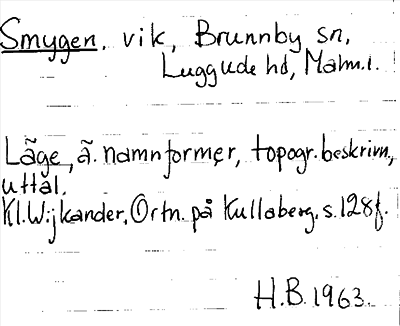 Smygen, vik, Brunnby sn,
Luggude hd, Malm.l.
Läge, ä. namnformer, topogr. beskrivn.,
uttal.
Kl. Wijkander, Ortn. på Kullaberg, s. 128 f.
H.B. 1963.